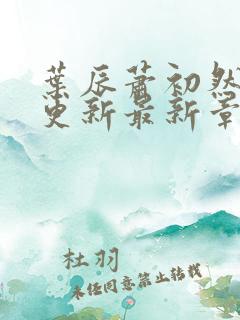 葉辰蕭初然
更新最新章
杜羽
未经同意禁止转载